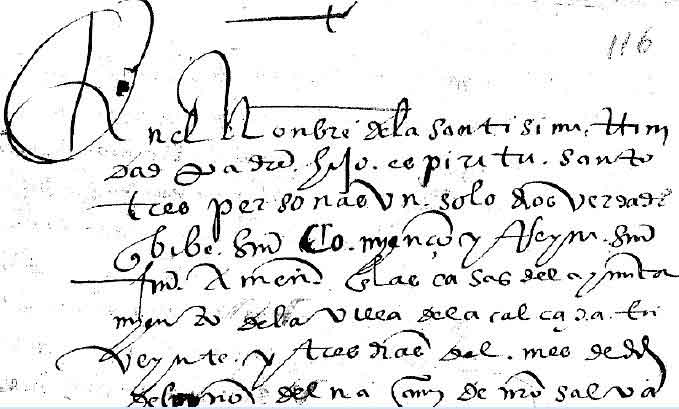 116
En el Nonbre dela santisima trini
dad padre. hijo. espiritu. santo
tres personas Un. solo dios verdade
q bibe. sin Co. mienço y Reyna. sin
fin. Amen. En las casas del ayunta
miento dela villa dela calçada. En
veynte. y tres dias del. mes de
del na de nro salva